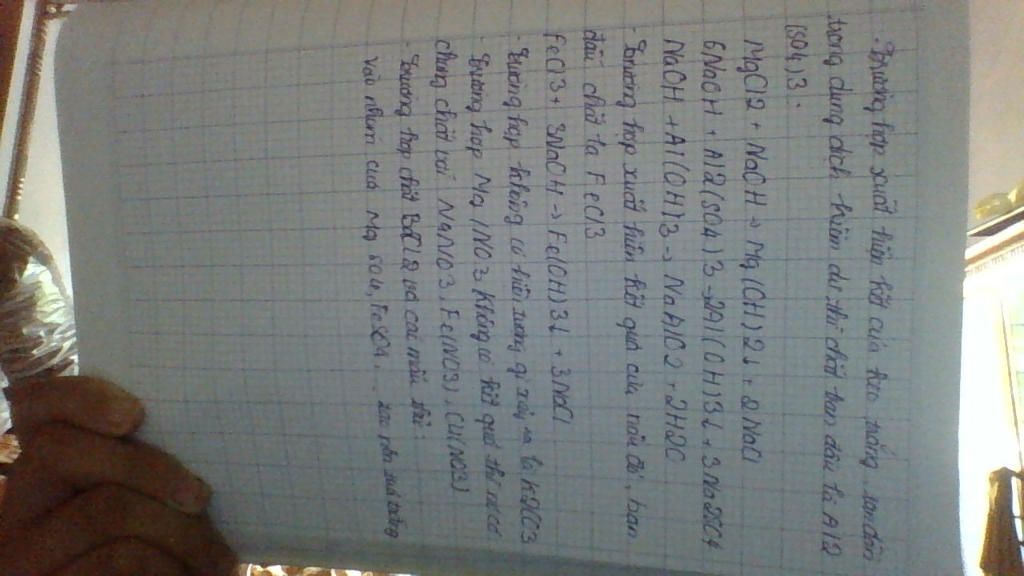 - Trường hợp xuất hiện kết của keo trắng, sau đó tan
trong dung dịch kiềm dư thì chất ban đầu là Al2
(SO4)3.
MgCl2 + NaOH -> Mg(OH)2↓ + 2NaCl
6NaOH + Al2(SO4)3 -> 2Al(OH)3↓ + 3Na2SO4
NaOH + Al(OH)3 -> NaAlO2 + 2H2O
- Trường hợp xuất hiện kết quả của nâu đỏ, ban
đầu chất là FeCl3
FeCl3 + 3NaOH -> Fe(OH)3↓ + 3NaCl
- Trường hợp không có hiện tượng gì xảy ra là KNO3
- Trường hợp Mg(NO3 không có kết quả thì
dùng chất NaNO3, Fe(NO3), Cu(NO3)
- Trường hợp chất BaCl2 và các muối thì:
với nhóm của MgSO4, FeSO4, ...